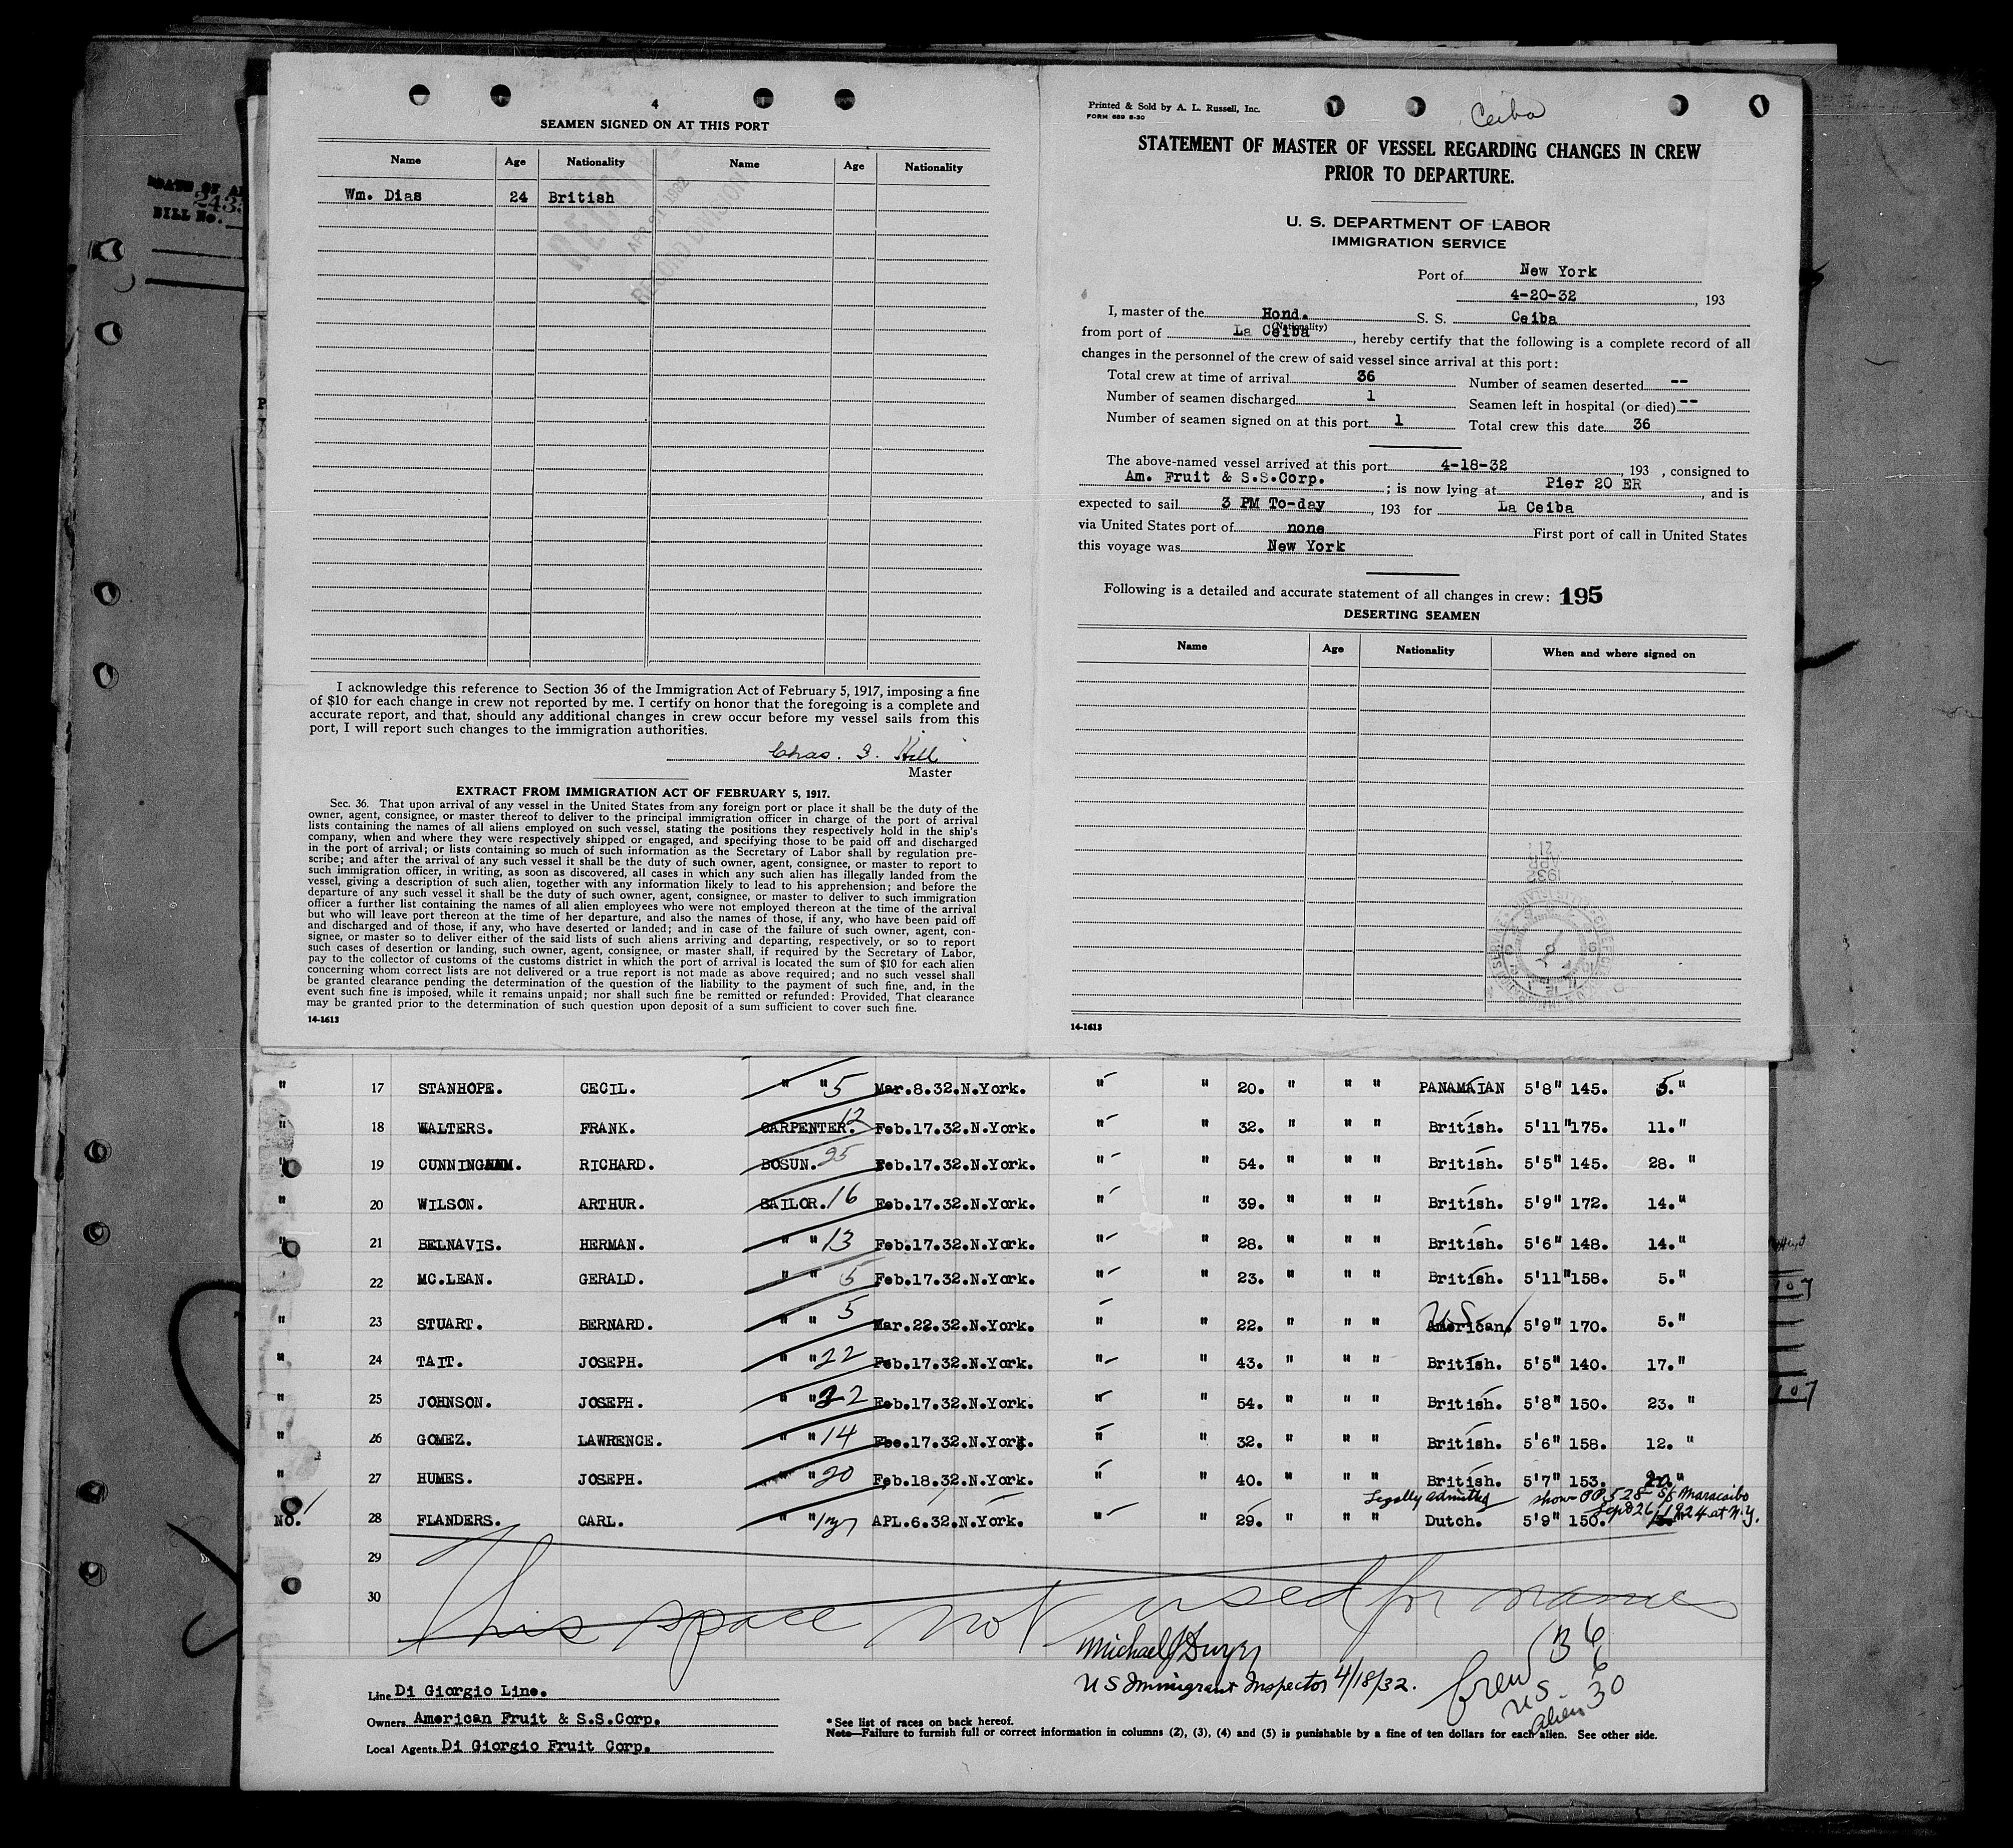 4
SEAMEN SIGNED ON AT THIS PORT
Name Age Nationality Name Age Nationality
Wm. Dias 24 British
RECORD DIVISION
I acknowledge this reference to Section 36 of the Immigration Act of February 5, 1917, imposing a fine
of $10 for each change in crew not reported by me. I certify on honor that the foregoing is a complete and
accurate report, and that, should any additional changes in crew occur before my vessel sails from this
port, I will report such changes to the immigration authorities.
Chas. S. Hill
Master
EXTRACT FROM IMMIGRATION ACT OF FEBRUARY 5, 1917.
Sec. 36. That upon arrival of any vessel in the United States from any foreign port or place it shall be the duty of the
owner, agent, consignee, or master thereof to deliver to the principal immigration officer in charge of the port of arrival
lists containing the names of all aliens employed on such vessel, stating the positions they respectively hold in the ship's
company, when and where they were respectively shipped or engaged, and specifying those to be paid off and discharged
in the port of arrival; or lists containing so much of such information as the Secretary of Labor shall by regulation pre-
scribe; and after the arrival of any such vessel it shall be the duty of such owner, agent, consignee, or master to report to
such immigration officer, in writing, as soon as discovered, all cases in which any such alien has illegally landed from the
vessel, giving a description of such alien, together with any information likely to lead to his apprehension; and before the
departure of any such vessel it shall be the duty of such owner, agent, consignee, or master to deliver to such immigration
officer a further list containing the names of all alien employees who were not employed thereon at the time of the arrival
but who will leave port thereon at the time of her departure, and also the names of those, if any, who have been paid off
and discharged and of those, if any, who have deserted or landed; and in case of the failure of such owner, agent, con-
signee, or master so to deliver either of the said lists of such aliens arriving and departing, respectively, or so to report
such cases of desertion or landing, such owner, agent, consignee, or master shall, if required by the Secretary of Labor,
pay to the collector of customs of the customs district in which the port of arrival is located the sum of $10 for each alien
concerning whom correct lists are not delivered or a true report is not made as above required; and no such vessel shall
be granted clearance pending the determination of the question of the liability to the payment of such fine, and, in the
event such fine is imposed, while it remains unpaid; nor shall such fine be remitted or refunded: Provided, That clearance
may be granted prior to the determination of such question upon deposit of a sum sufficient to cover such fine.
14-1613
Printed & Sold by A. L. Russell, Inc.
FORM 689 8-30
Ceiba
STATEMENT OF MASTER OF VESSEL REGARDING CHANGES IN CREW
PRIOR TO DEPARTURE.
U. S. DEPARTMENT OF LABOR
IMMIGRATION SERVICE
Port of New York
4-20-32, 193
I, master of the Hond. S. S. Ceiba
(Nationality)
from port of La Ceiba, hereby certify that the following is a complete record of all
changes in the personnel of the crew of said vessel since arrival at this port:
Total crew at time of arrival 36 Number of seamen deserted --
Number of seamen discharged 1 Seamen left in hospital (or died) --
Number of seamen signed on at this port 1 Total crew this date 36
The above-named vessel arrived at this port 4-18-32, 193 , consigned to
Am. Fruit & S.S.Corp. ; is now lying at Pier 20 ER, and is
expected to sail 3 PM To-day, 193 for La Ceiba
via United States port of none First port of call in United States
this voyage was New York
Following is a detailed and accurate statement of all changes in crew: 195
DESERTING SEAMEN
Name Age Nationality When and where signed on
APR 21 1932
14-1613
" 17 STANHOPE. CECIL. " " 5 Mar.8.32.N.York. " " 20. " " " PANAMAIAN 5'8" 145. 5."
" 18 WALTERS. FRANK. CARPENTER. 12 Feb.17.32.N.York. " " 32. " " " British. 5'11" 175. 11."
" 19 CUNNINGHAM. RICHARD. BOSUN. 25 Feb.17.32.N.York. " " 54. " " " British. 5'5" 145. 28. "
" 20 WILSON. ARTHUR. SAILOR. 16 Feb.17.32.N.York. " " 39. " " " British. 5'9" 172. 14."
" 21 BELNAVIS. HERMAN. " " 13 Feb.17.32.N.York. " " 28. " " " British. 5'6" 148. 14."
" 22 MC.LEAN. GERALD. " " 5 Feb.17.32.N.York. " " 23. " " " British. 5'11" 158. 5."
" 23 STUART. BERNARD. " " 5 Mar.22.32.N.York. " " 22. " " " US American. 5'9" 170. 5."
" 24 TAIT. JOSEPH. " " 22 Feb.17.32.N.York. " " 43. " " " British. 5'5" 140. 17."
" 25 JOHNSON. JOSEPH. " " 22 Feb.17.32.N.York. " " 54. " " " British. 5'8" 150. 23. "
" 26 GOMEZ. LAWRENCE. " " 14 Fbe.17.32.N.York. " " 32. " " " British. 5'6" 158. 12. "
" 27 HUMES. JOSEPH. " " 20 Feb.18.32.N.York. " " 40. " " " British. 5'7" 153. 20."
Legally admitted show PP 528 SS Maracaibo
Sept 26/1924 at N.Y.
No. 28 FLANDERS. CARL. " " 1 yr APL.6.32.N.York. " " 29. " " " Dutch. 5'9" 150.
29
30
This space not used for names
Michael J Dwyer
US Immigrant Inspector 4/18/32.
Crew 36
US 6
alien 30
Line Di Giorgio Line.
Owners American Fruit & S.S.Corp.
Local Agents Di Giorgio Fruit Corp.
* See list of races on back hereof.
Note—Failure to furnish full or correct information in columns (2), (3), (4) and (5) is punishable by a fine of ten dollars for each alien. See other side.
BILL No.
107
107